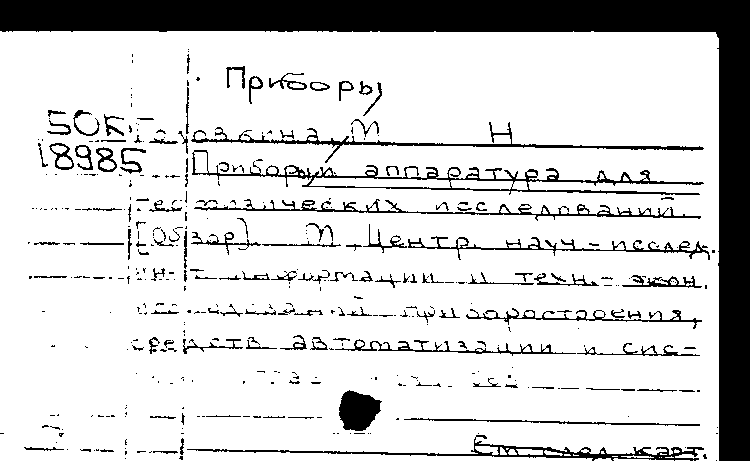 Приборы
50К
М Н
18985 Приборы и аппаратура для
геофизических исследований.
[Обзор]. М, Центр. науч-исслед.
ин-т информации и техн.-экон.
исследований приборостроения,
средств автоматизации и сис-
См. след. карт.